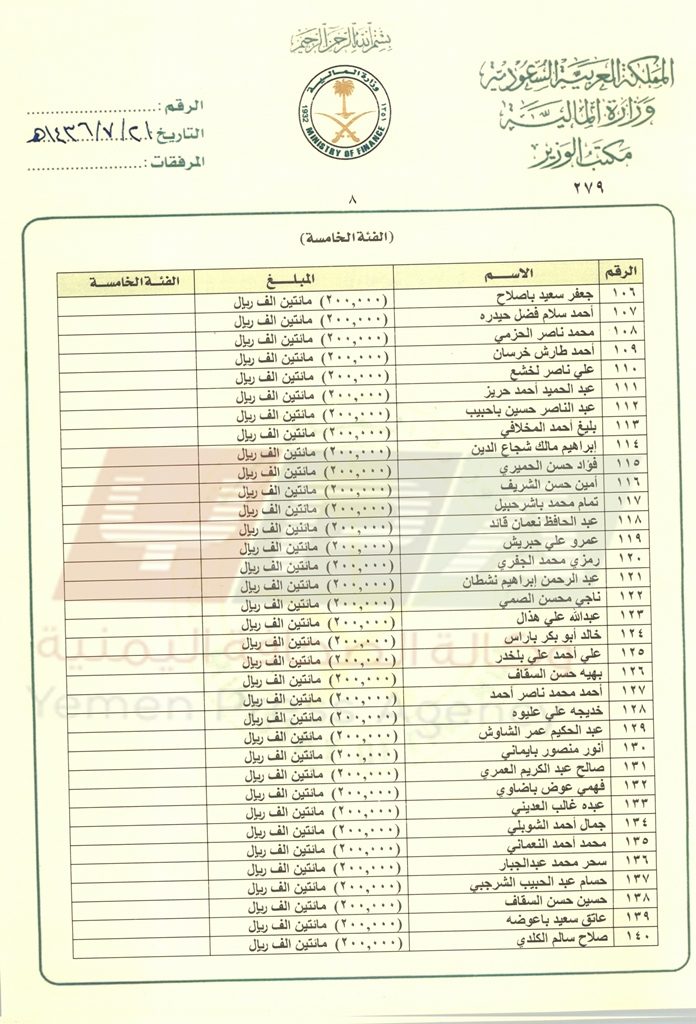 بسم الله الرحمن الرحيم
المملكة العربية السعودية
وزارة المالية
مكتب الوزير
٢٧٩
وزارة المالية
1932 ١٣٥١
MINISTRY OF FINANCE
الرقم:
التاريخ ١٤٣٦/٧/٢١هـ
المرفقات:
٨
(الفئة الخامسة)
الرقم الاســم المبلــغ الفئة الخامسة
١٠٦ جعفر سعيد باصلاح (٢٠٠,٠٠٠) مائتين الف ريال
١٠٧ أحمد سلام فضل حيدره (٢٠٠,٠٠٠) مائتين الف ريال
١٠٨ محمد ناصر الحزمي (٢٠٠,٠٠٠) مائتين الف ريال
١٠٩ أحمد طارش خرسان (٢٠٠,٠٠٠) مائتين الف ريال
١١٠ علي ناصر لخشع (٢٠٠,٠٠٠) مائتين الف ريال
١١١ عبد الحميد أحمد حريز (٢٠٠,٠٠٠) مائتين الف ريال
١١٢ عبد الناصر حسين باحبيب (٢٠٠,٠٠٠) مائتين الف ريال
١١٣ بليغ أحمد المخلافي (٢٠٠,٠٠٠) مائتين الف ريال
١١٤ إبراهيم مالك شجاع الدين (٢٠٠,٠٠٠) مائتين الف ريال
١١٥ فؤاد حسن الحميري (٢٠٠,٠٠٠) مائتين الف ريال
١١٦ أمين حسن الشريف (٢٠٠,٠٠٠) مائتين الف ريال
١١٧ تمام محمد باشرحبيل (٢٠٠,٠٠٠) مائتين الف ريال
١١٨ عبد الحافظ نعمان قائد (٢٠٠,٠٠٠) مائتين الف ريال
١١٩ عمرو علي حبريش (٢٠٠,٠٠٠) مائتين الف ريال
١٢٠ رمزي محمد الجفري (٢٠٠,٠٠٠) مائتين الف ريال
١٢١ عبد الرحمن إبراهيم نشطان (٢٠٠,٠٠٠) مائتين الف ريال
١٢٢ ناجي محسن الصمي (٢٠٠,٠٠٠) مائتين الف ريال
١٢٣ عبدالله علي هذال (٢٠٠,٠٠٠) مائتين الف ريال
١٢٤ خالد أبو بكر باراس (٢٠٠,٠٠٠) مائتين الف ريال
١٢٥ علي أحمد علي بلخدر (٢٠٠,٠٠٠) مائتين الف ريال
١٢٦ بهيه حسن السقاف (٢٠٠,٠٠٠) مائتين الف ريال
١٢٧ أحمد محمد ناصر أحمد (٢٠٠,٠٠٠) مائتين الف ريال
١٢٨ خديجه علي عليوه (٢٠٠,٠٠٠) مائتين الف ريال
١٢٩ عبد الحكيم عمر الشاوش (٢٠٠,٠٠٠) مائتين الف ريال
١٣٠ أنور منصور بايماني (٢٠٠,٠٠٠) مائتين الف ريال
١٣١ صالح عبد الكريم العمري (٢٠٠,٠٠٠) مائتين الف ريال
١٣٢ فهمي عوض باضاوي (٢٠٠,٠٠٠) مائتين الف ريال
١٣٣ عبده غالب العديني (٢٠٠,٠٠٠) مائتين الف ريال
١٣٤ جمال أحمد الشوبلي (٢٠٠,٠٠٠) مائتين الف ريال
١٣٥ محمد أحمد النعماني (٢٠٠,٠٠٠) مائتين الف ريال
١٣٦ سحر محمد عبدالجبار (٢٠٠,٠٠٠) مائتين الف ريال
١٣٧ حسام عبد الحبيب الشرجبي (٢٠٠,٠٠٠) مائتين الف ريال
١٣٨ حسين حسن السقاف (٢٠٠,٠٠٠) مائتين الف ريال
١٣٩ عاتق سعيد باعوضه (٢٠٠,٠٠٠) مائتين الف ريال
١٤٠ صلاح سالم الكلدي (٢٠٠,٠٠٠) مائتين الف ريال